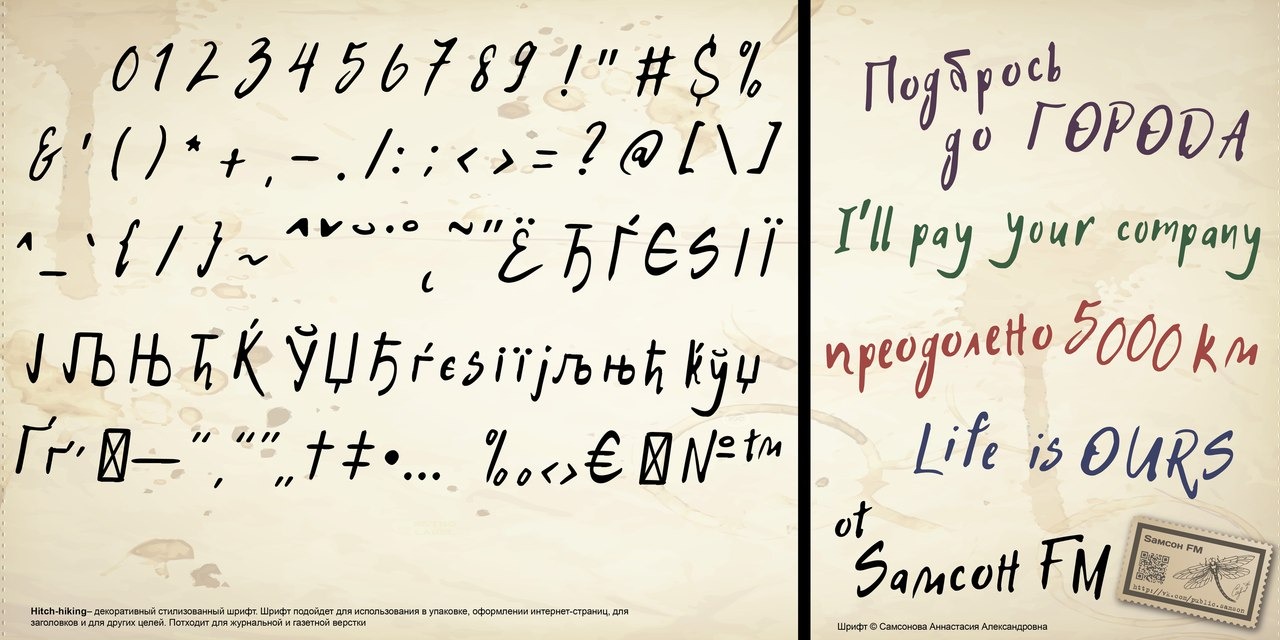 0 1 2 3 4 5 6 7 8 9 ! " # $ %
& ' ( ) * + , – . / : ; < > = ? @ [ \ ]
^ _ ` { / } ~ ^ ˇ ˘ · ° ˛ ~ ˝ Ё Ђ Ѓ Є Ѕ І Ї
Ј Љ Њ Ћ Ќ Ў Џ Ђ ѓ є ѕ і ї ј љ њ ћ ќ ў џ
Ґ ґ ʼ — ” ‚ “ ” „ † ‡ • … ‰ ‹ › € № ™
Hitch-hiking– декоративный стилизованный шрифт. Шрифт подойдет для использования в упаковке, оформлении интернет-страниц, для
заголовков и для других целей. Потходит для журнальной и газетной верстки
Подбрось
до ГОРОДА
I'll pay your company
преодолено 5000 км
Life is OURS
от
Sамсон FM
Sамсон FM
http://vk.com/public.samson
Шрифт © Самсонова Аннастасия Александровна